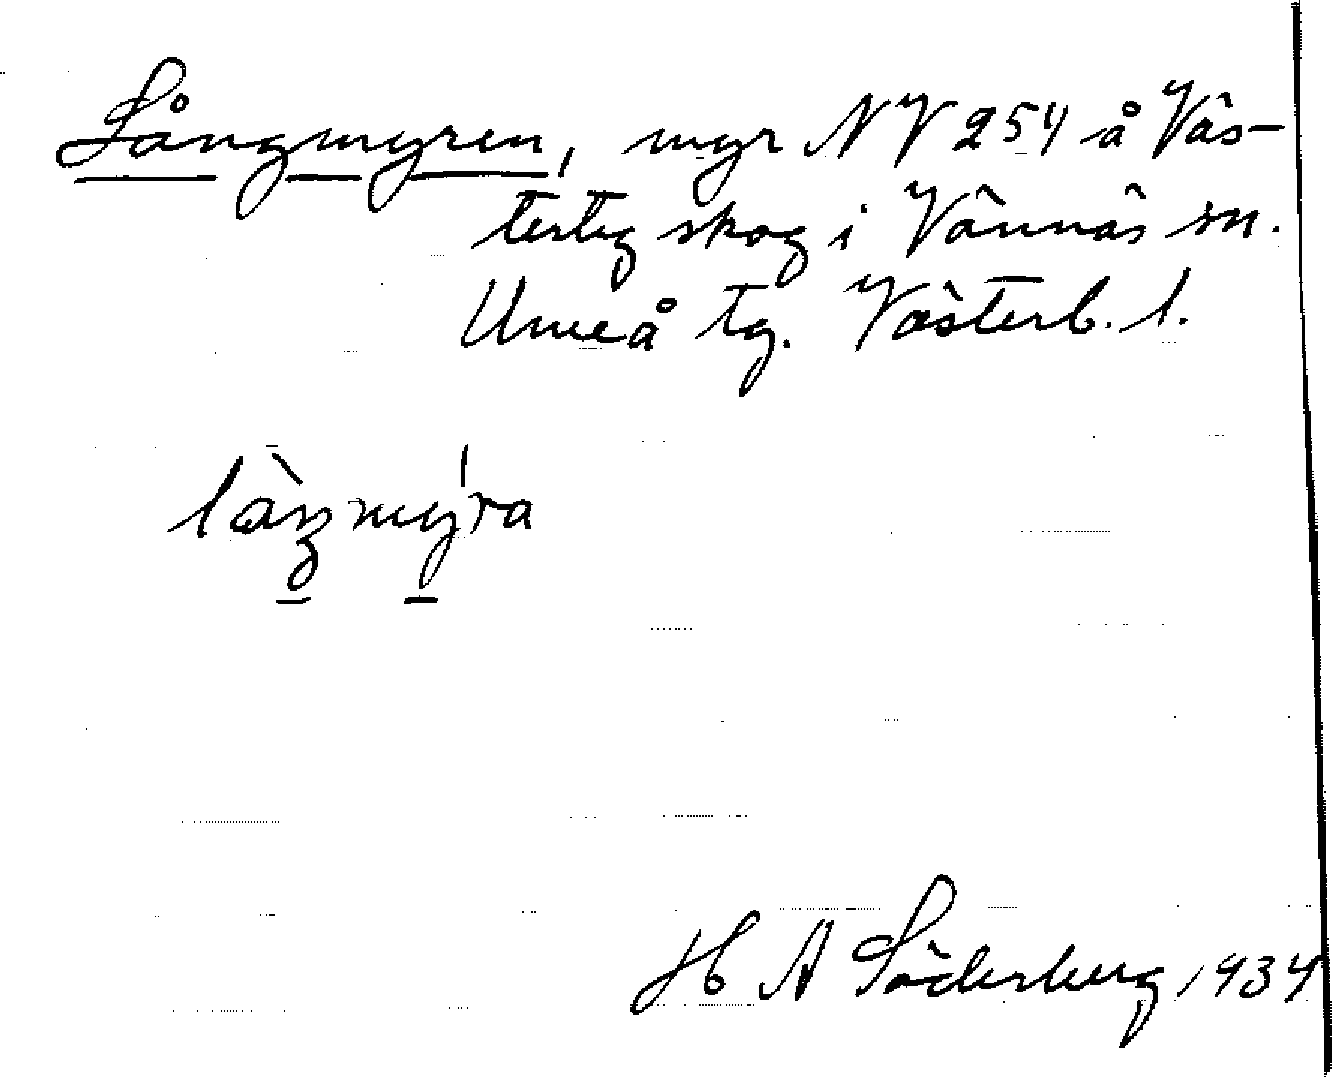 Långmyren, myr NV 254 å Väs-
terteg skog i Vännäs sn.
Umeå tg. Västerb. l.
H A Söderberg 1934